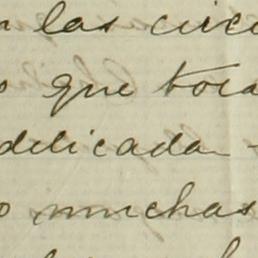 n las circu
o que toca
delicada -
o muchas